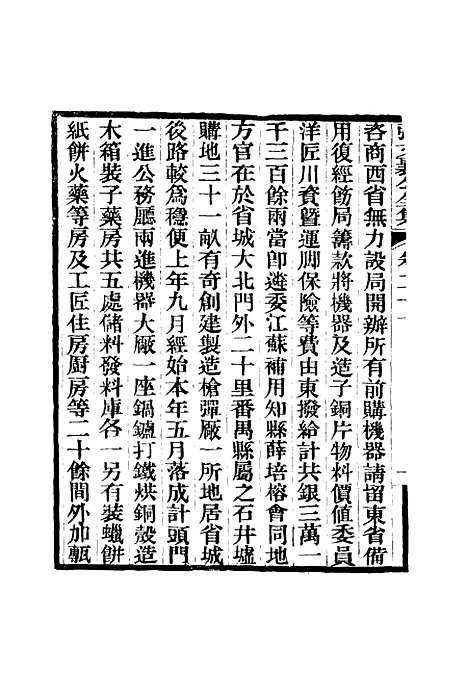 咨商西省無力設局開辦所有前購機器請留東省備
用復經飭局籌款將機器及造子銅片物料價值委員
洋匠川資曁運脚保險等費由東撥給計共銀三萬一
千三百餘兩當卽遴委江蘇補用知縣薛培榕會同地
方官在於省城大北門外二十里番禺縣屬之石井墟
購地三十一畝有奇創建製造槍彈厰一所地居省城
後路較爲穩便上年九月經始本年五月落成計頭門
一進公務廳兩進機器大厰一座鍋鑪打鐵烘銅殼造
木箱裝子藥房共五處儲料發料庫各一另有裝蠟餅
紙餅火藥等房及工匠住房厨房等二十餘間外加甎